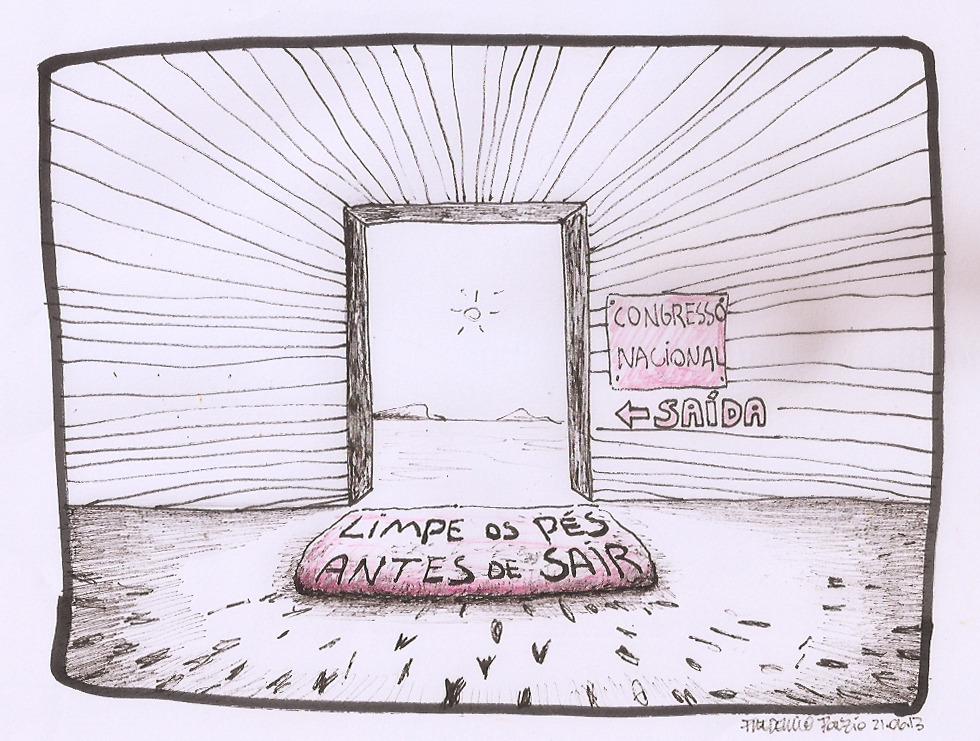 CONGRESSO
NACIONAL
←SAÍDA
LIMPE OS PÉS
ANTES DE SAIR
21.06.13